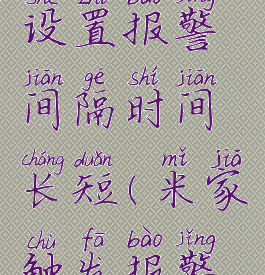 shè zhì bào jǐng
设置报警
jiān gé shí jiān
间隔时间
cháng duǎn mǐ jiā
长短(米家
chù fā bào jǐng
触发报警